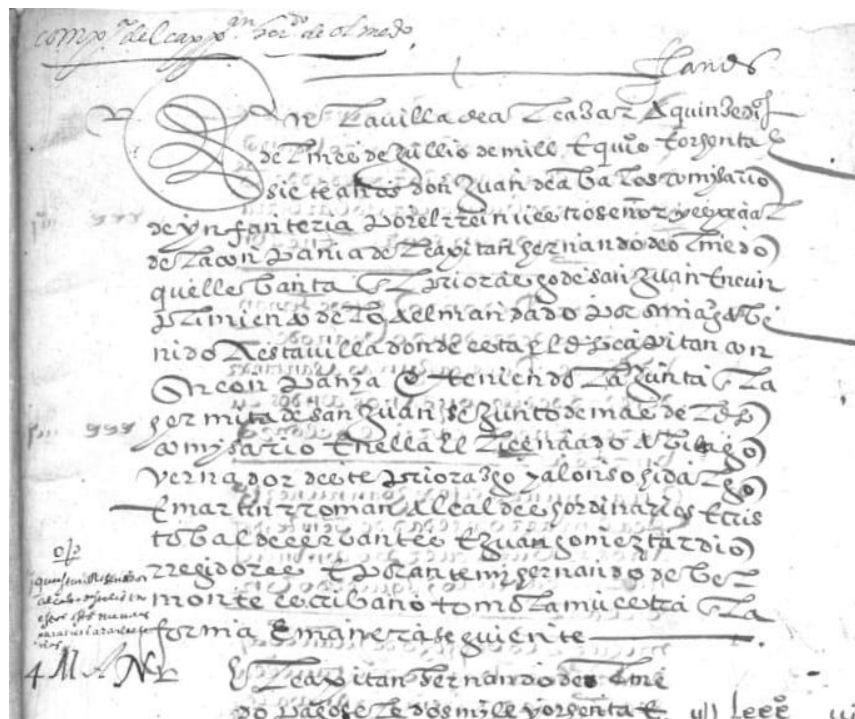 comp.ª del capp.an her.do de olmedo.
flands
En la villa de alcaçar A quinze dias
del mes de Jullio de mill E qui.os E ochenta E
siete años don Juan de abalos comisario
de ynfanteria por el rrei nuestro señor y especial
de la conpania del capitan hernando de olmedo
que lebanta En el priorazgo de san Juan En cun
plimiento de lo a el mandado por su mag.d A be
nido A esta villa donde esta el d.ho capitan con
Su conpania E teniendo la junta En la
hermita de san Juan se junto demas del d.ho
comisario En ella el licenciado go
vernador deste priorazgo y alonso hidalgo
E martin rroman Alcaldes hordinarios E cris
tobal de cerbantes E Juan gomez tardio
rregidores E por ante mi hernando de bel
monte escribano tomo la muestra En la
forma E manera siguiente
4 M A
El capitan hernando de olme
do pagosele dos mille y ochenta E